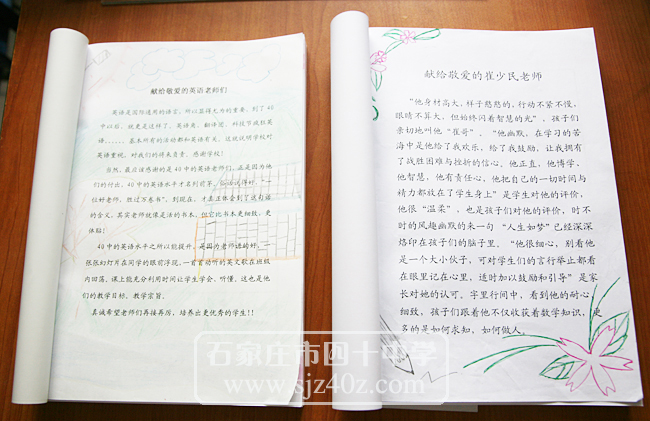 献给敬爱的英语老师们
英语是国际通用的语言,所以显得尤为的重要,到了40
中以后,就更是这样了,英语角、翻译团、科技节疯狂英
语......,基本所有的活动都和英语有关,这就说明学校对
英语重视,对我们的将来负责,感谢学校!
当然,最应该感谢的是40中的英语老师们,正是因为他
们的付出,40中的英语水平才名列前茅,
位好老师,胜过万卷书",到现在,才真正体会到了这句话
的含义,其实老师就像是活的书本,但它比书本更细致,更
体贴!
40中的英语水平之所以能提升,是因为老师讲的好,一
张张幻灯片在同学的眼前浮现,一首首动听的英文歌在班级
内回荡,课上能充分利用时间让学生学会、听懂,这也是他
们的教学目标,教学宗旨。
真诚希望老师们再接再厉,培养出更优秀的学生!!
献给敬爱的崔少民老师
"他身材高大,样子憨憨的,行动不紧不慢,
眼睛不算大,但始终闪着智慧的光",孩子们
亲切地叫他"崔哥"。"他幽默,在学习的苦
海中是他给了我欢乐,给了我鼓励,让我拥有
了战胜困难与挫折的信心,他正直,他博学,
他智慧,他有责任心,他把自己的一切时间与
精力都放在了学生身上"是学生对他的评价,
他很"温柔",也是孩子们对他的评价,时不
时的风趣幽默的来一句"人生如梦"已经深深
烙印在孩子们的脑子里。"他很细心,别看他
是一个大小伙子,可对学生们的言行举止都看
在眼里记在心里,适时加以鼓励和引导"是家
长对她的认可,字里行间中,看到他的耐心
细致,孩子们跟着他不仅收获着数学知识,更
多的是如何求知,如何做人。
石家庄市四十中学
www.sjz40z.com